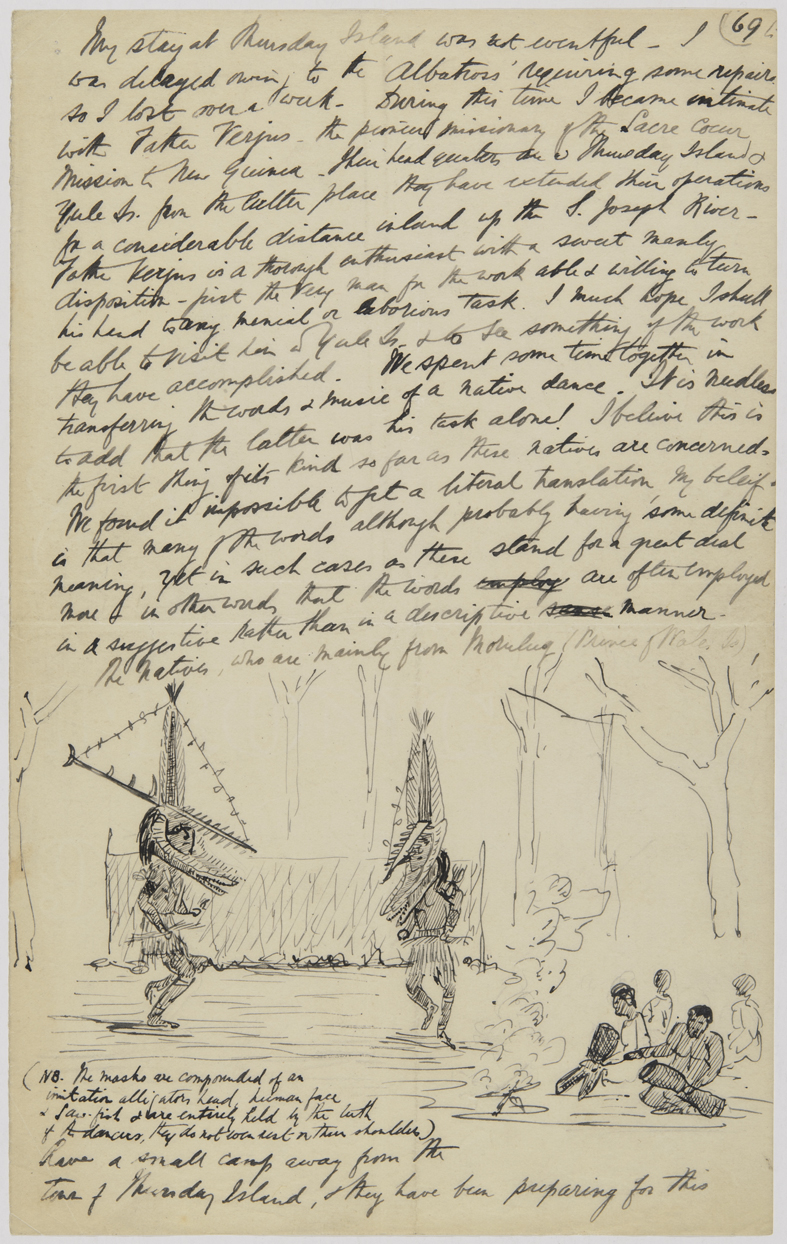 (69
My stay at Thursday Island was not eventful - I
was delayed owing to the 'Albatross' requiring some repairs
so I lost over a week - During this time I became intimate
with Father Verjus - the pioneer missionary of the Sacre Coeur
Mission to New Guinea - Their head quarters are @ Thursday Island &
Yule Is. from the latter place they have extended their operations
for a considerable distance inland up the S. Joseph River -
Father Verjus is a thorough enthusiast with a sweet manly
disposition - just the very man for the work able & willing to turn
his hand to any menial or laborious task. I much hope I shall
be able to visit him @ Yule Is. & to see something of the work
they have accomplished. We spent some time together in
transferring the words & music of a native dance. It is needless
to add that the latter was his task alone! I believe this is
the first thing of its kind so far as these natives are concerned -
We found it impossible to get a literal translation My beleif -
is that many of the words although probably having some definite
meaning, yet in such cases as these stand for a great deal
more & in other words that the words employ are often employed
in a suggestive rather than in a descriptive manner -
The natives, who are mainly from Morulug (Prince of Wales Is)
(NB. The masks are compounded of an
imitation alligators head, human face
& Saw-fish & are entirely held by the teeth
of the dancers, they do not rest on their shoulders)
have a small camp away from the
town of Thursday Island, & they have been preparing for this